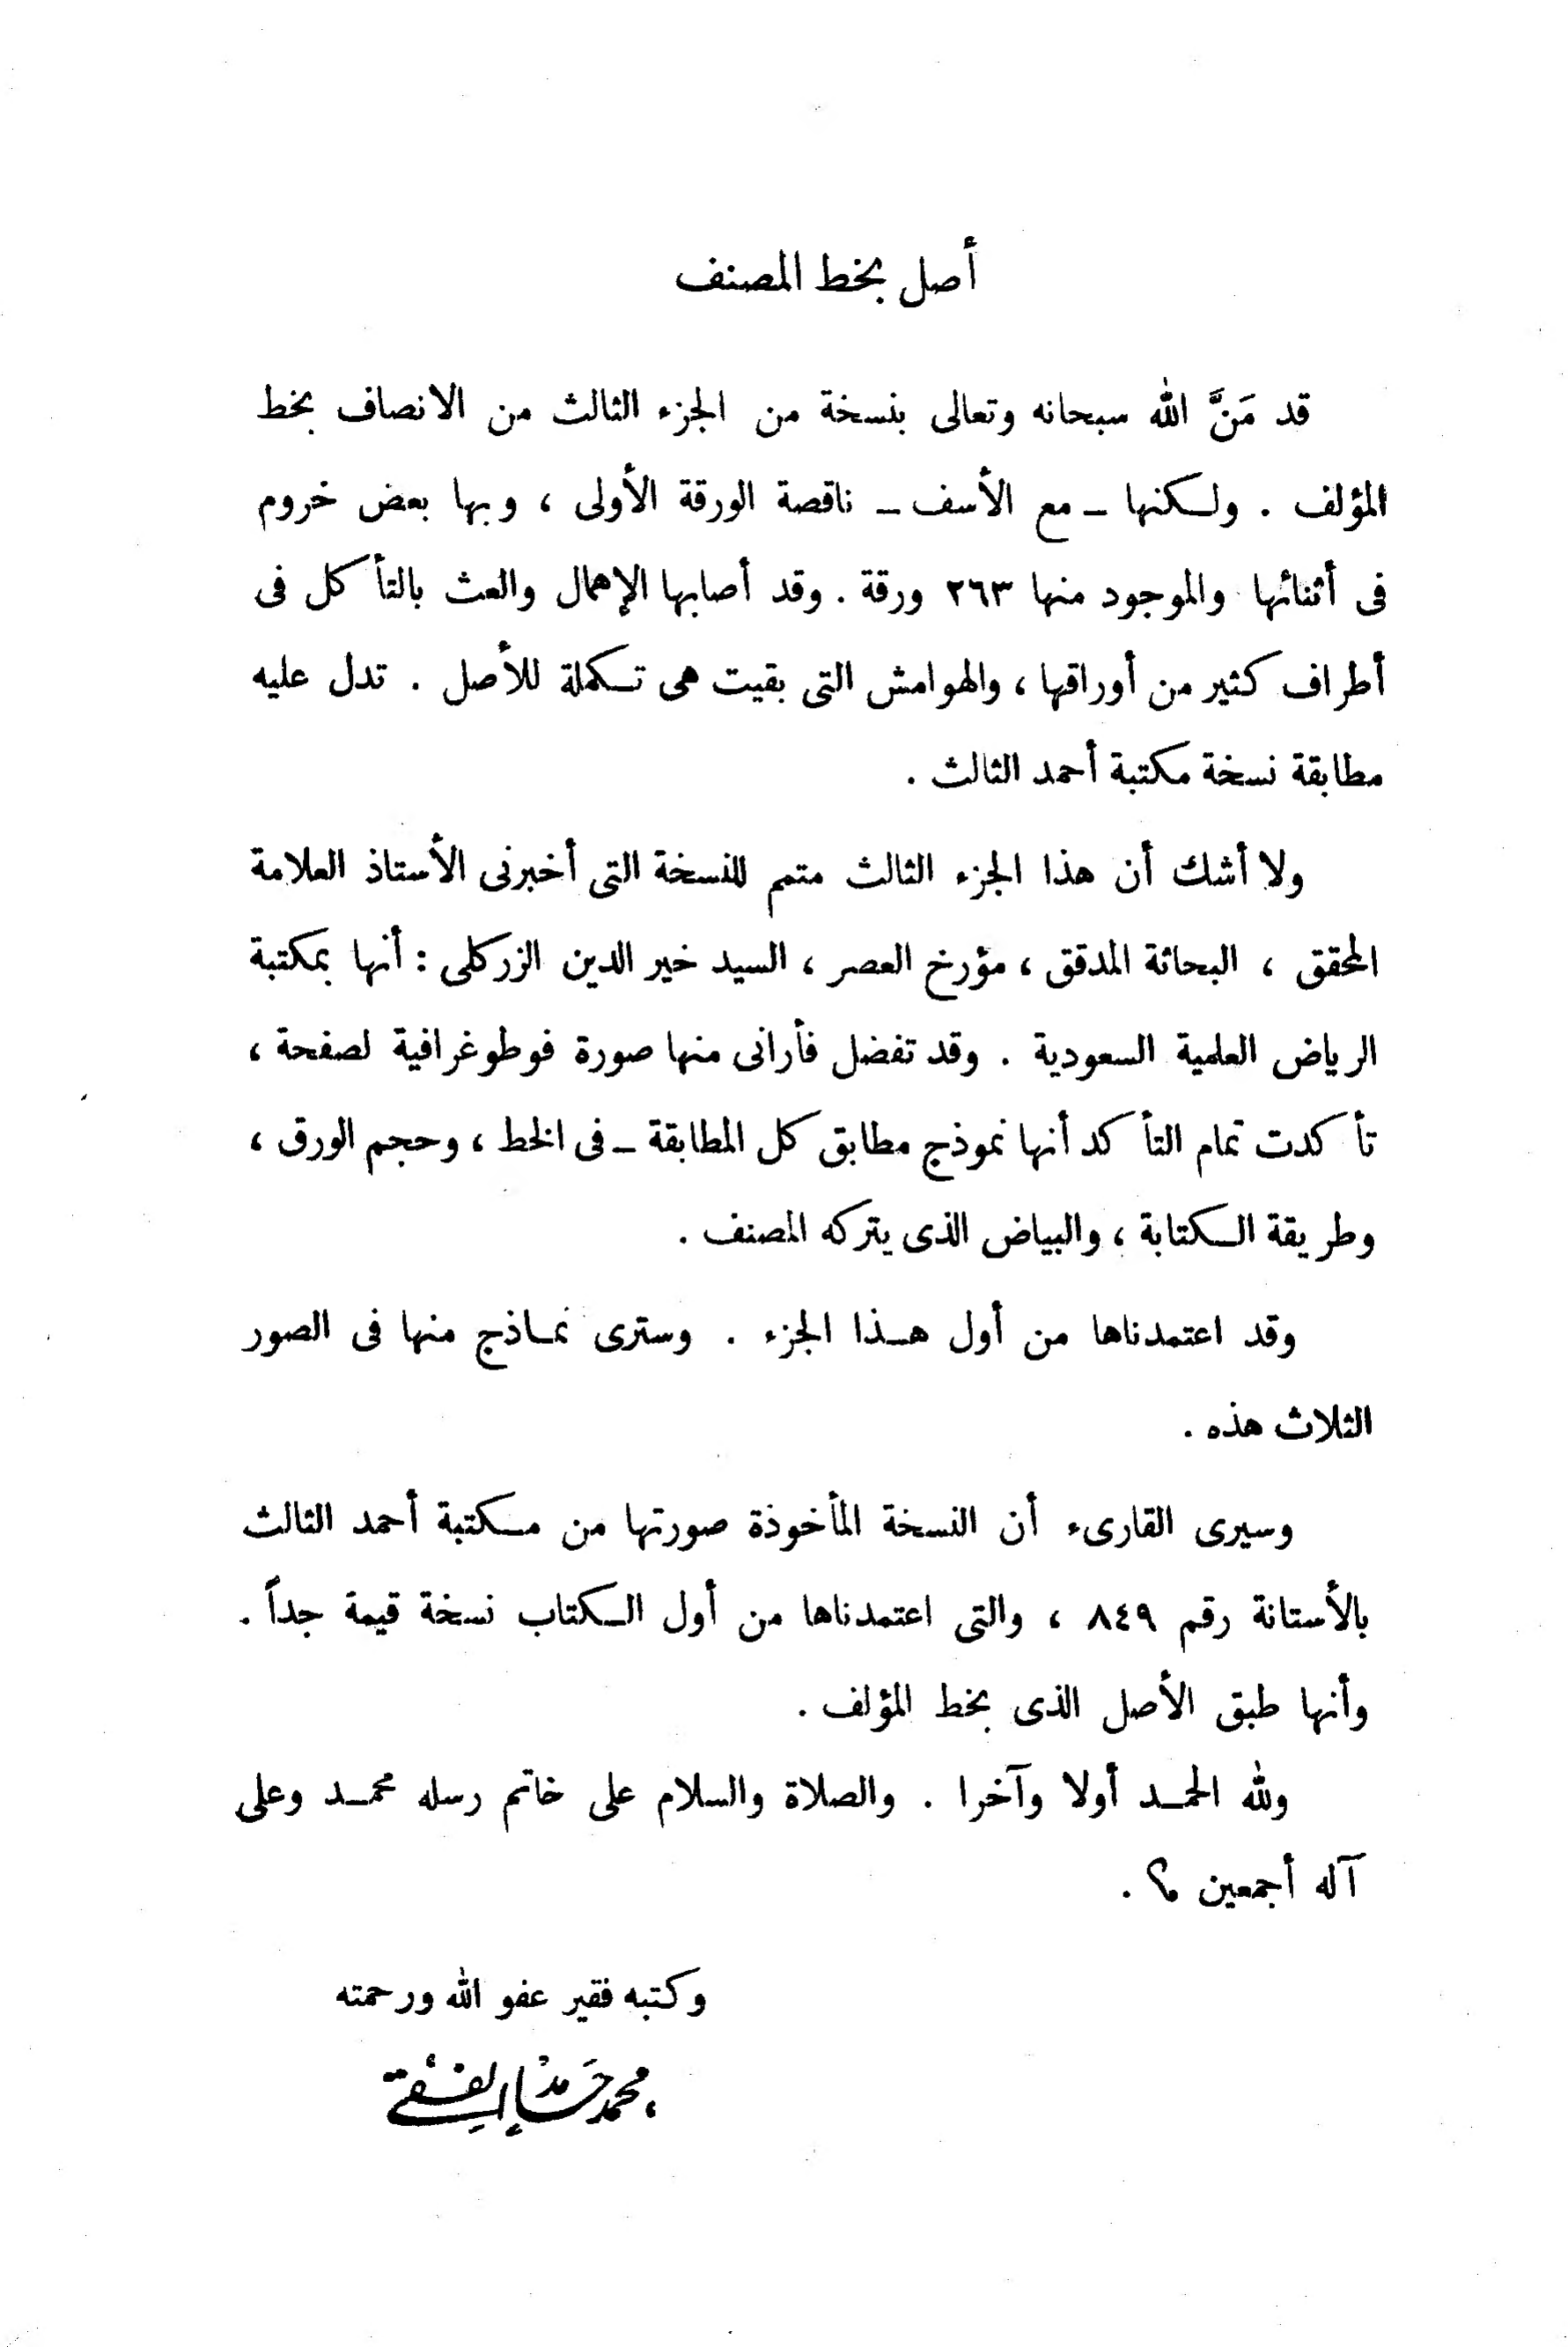 أصل بخط المصنف
قد مَنَّ الله سبحانه وتعالى بنسخة من الجزء الثالث من الانصاف بخط
المؤلف . ولكنها ــ مع الأسف ــ ناقصة الورقة الأولى ، وبها بعض خروم
فى أثنائها والموجود منها ٢٦٣ ورقة . وقد أصابها الإهمال والعث بالتأكل فى
أطراف كثير من أوراقها ، والهوامش التى بقيت هى تكملة للأصل . تدل عليه
مطابقة نسخة مكتبة أحمد الثالث .
ولا أشك أن هذا الجزء الثالث متمم للنسخة التى أخبرنى الأستاذ العلامة
المحقق ، البحاثة المدقق ، مؤرخ العصر ، السيد خير الدين الزركلى : أنها بمكتبة
الرياض العلمية السعودية . وقد تفضل فأرانى منها صورة فوطوغرافية لصفحة ،
تأكدت تمام التأكد أنها نموذج مطابق كل المطابقة ــ فى الخط ، وحجم الورق ،
وطريقة الكتابة ، والبياض الذى يتركه المصنف .
وقد اعتمدناها من أول هذا الجزء . وسترى نماذج منها فى الصور
الثلاث هذه .
وسيرى القارىء أن النسخة المأخوذة صورتها من مكتبة أحمد الثالث
بالأستانة رقم ٨٤٩ ، والتى اعتمدناها من أول الكتاب نسخة قيمة جداً .
وأنها طبق الأصل الذى بخط المؤلف .
ولله الحمد أولا وآخرا . والصلاة والسلام على خاتم رسله محمد وعلى
آله أجمعين ؟ .
وكتبه فقير عفو الله ورحمته
محمد حامد الفقي